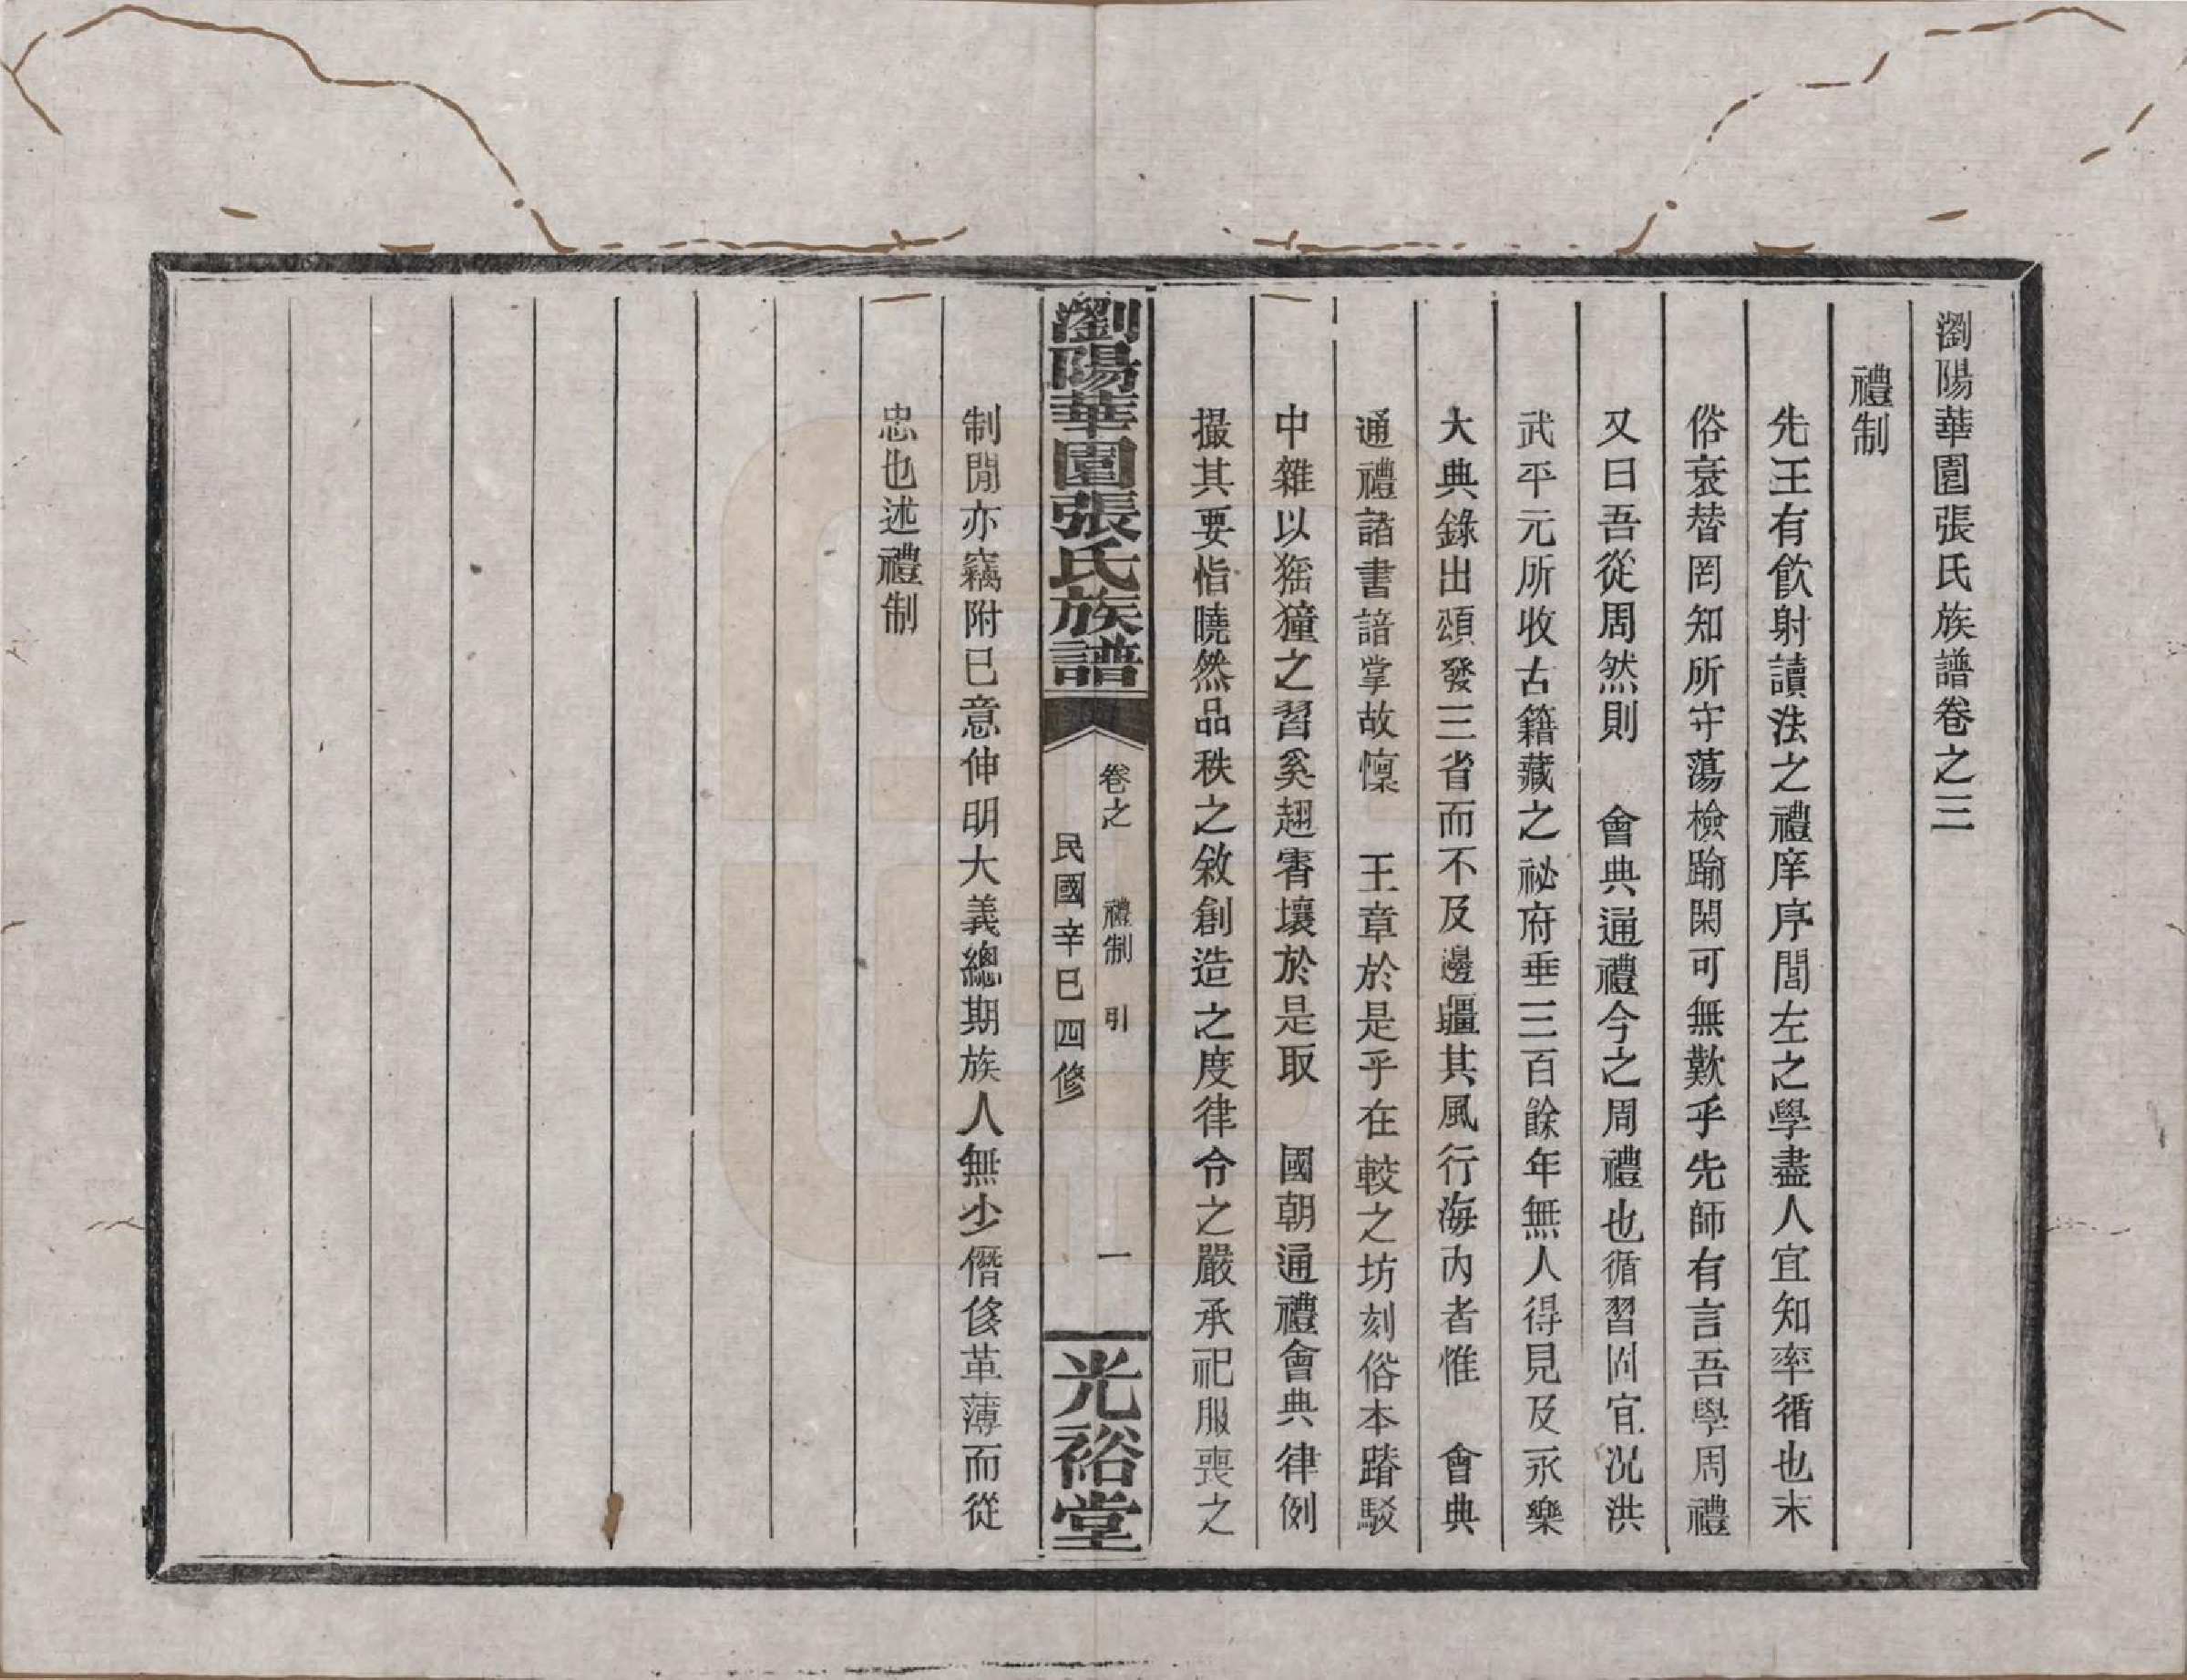 瀏陽華園張氏族譜卷之三
禮制
先王有飮射讀法之禮庠序閭左之學盡人宜知率循也末
俗衰替罔知所守蕩檢踰閑可無歎乎先師有言吾學周禮
又曰吾從周然則 會典通禮今之周禮也循習固宜況洪
武平元所收古籍藏之祕府垂三百餘年無人得見及永樂
大典錄出頌發三省而不及邊疆其風行海內者惟 會典
通禮諸書諳掌故懍 王章於是乎在較之坊刻俗本踳駁
中雜以猺獞之習奚趐霄壤於是取 國朝通禮會典律例
撮其要恉曉然品秩之敘創造之度律令之嚴承祀服喪之
瀏陽華園張氏族譜
卷之 禮制 引 一
民國辛巳四修
光裕堂
制閒亦竊附己意伸明大義總期族人無少僭侈革薄而從
忠也述禮制